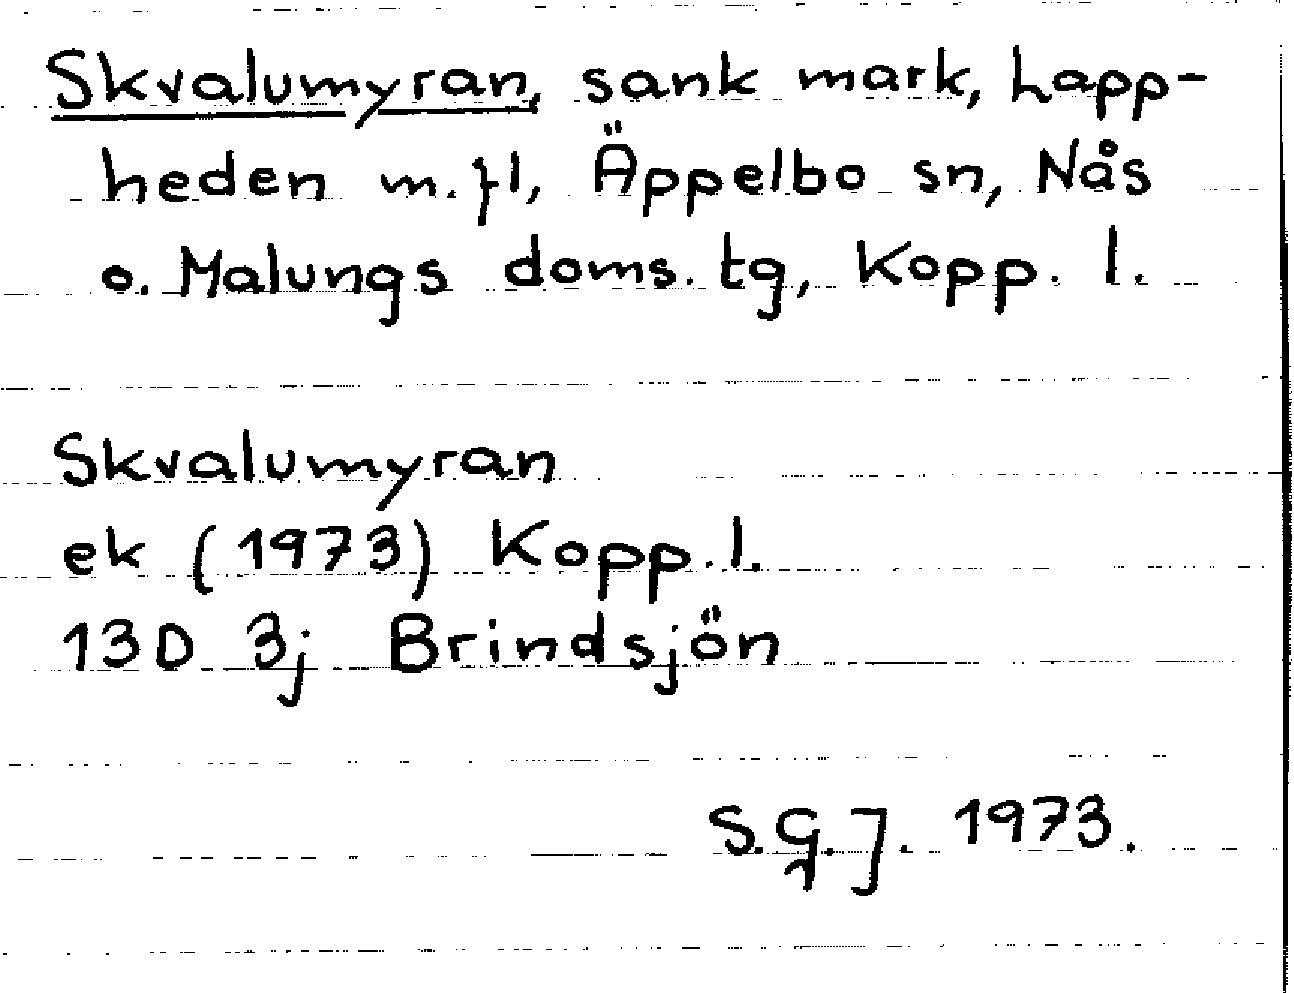 Skvalumyran, sank mark, Lapp-
heden m.fl, Äppelbo sn, Nås
o. Malungs doms. tg, Kopp. l.
Skvalumyran
ek (1973) Kopp. l.
13D 3j Brindsjön
S.G.J. 1973.